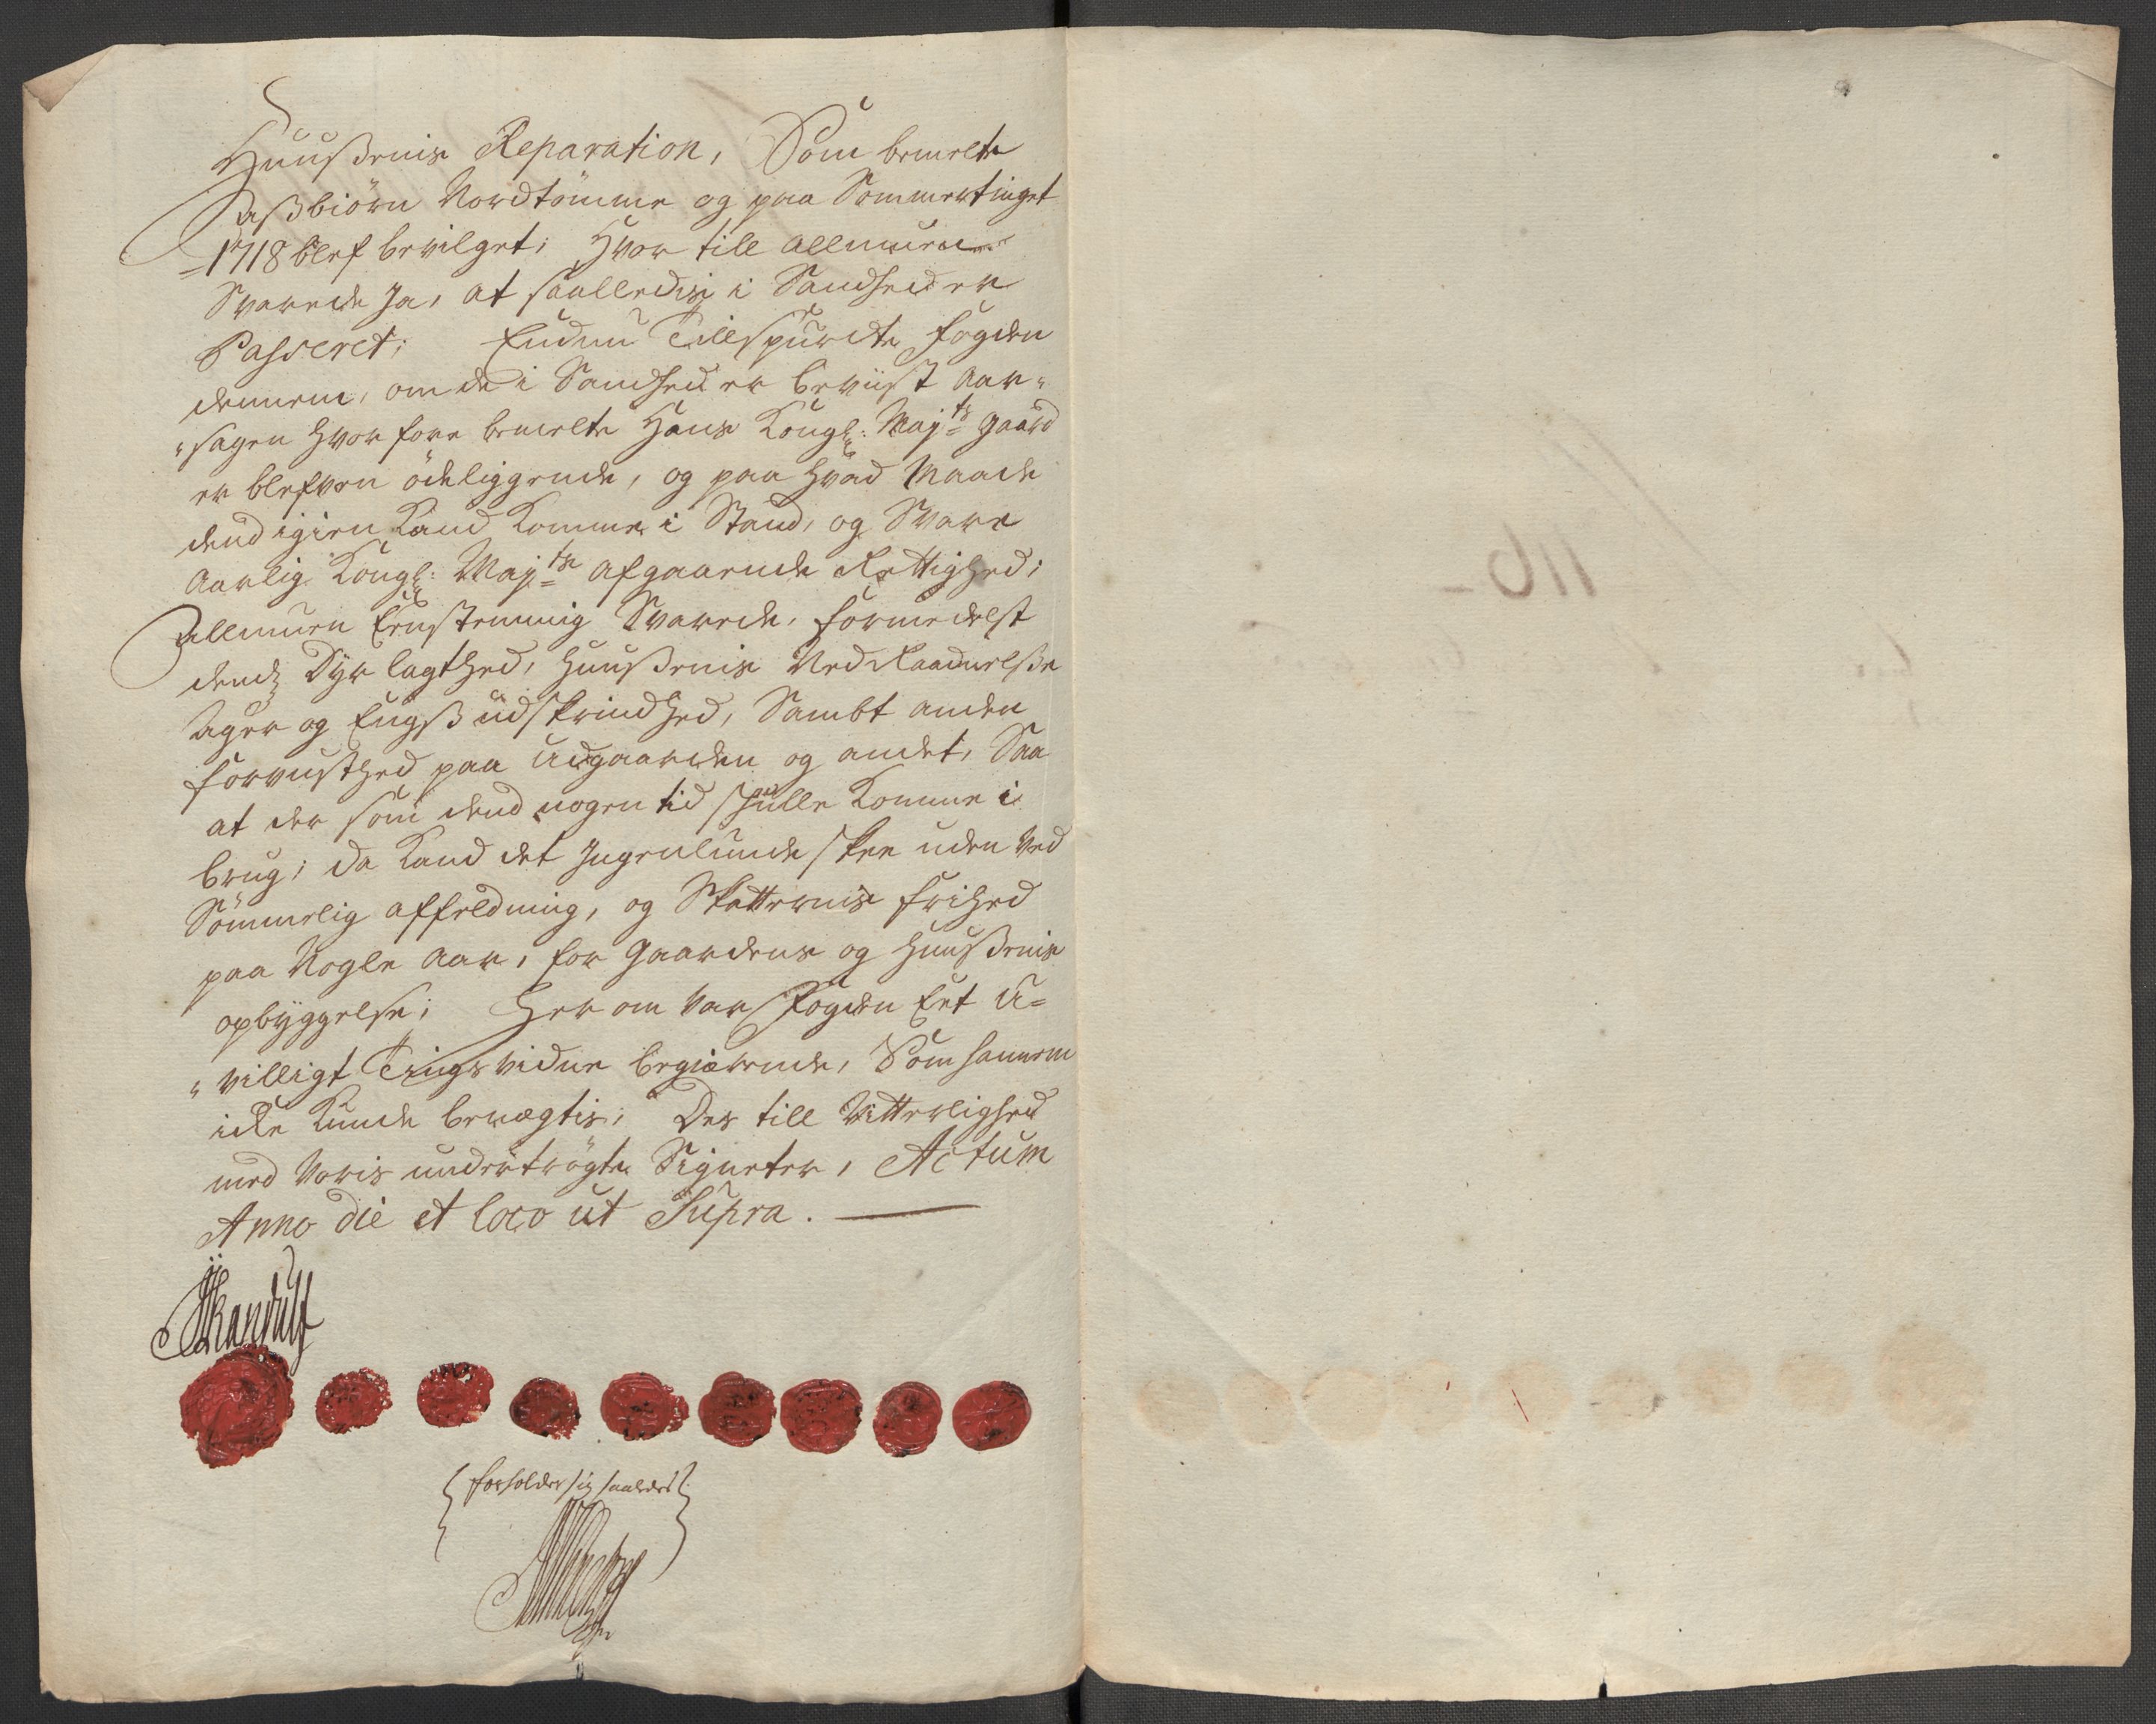 Huußenis Reparation, Som bemelte
Aßbiörn Nordtömme og paa Sommertinget
1718 blef bevilget; Hvor till Allmuen
Svarede Ja, at saalledis i Sandhed er
Passeret; Endnu Tillspurdte fogden
dennem, om de i Sandhed er beviist Aar-
sagen hvor fore bemelte Hans Kongl: Maj.ts gaard
er blefven ödeliggende, og paa hvad Maade
dend igien Kand Komme i Stand, og Svare
Aarlig Kongl: Maj.ts afgaaende Rettighed;
Allmuen Eenstemmig Svarede, formedelst
dends Dyr lagthed, Huußenis Ved Raadnelße
Ager og Engß udskrindhed, Sambt anden
forvusthed paa Udgaarden og andet, Saa
at der som dend nogen tid skulle Komme i
brug; da Kand det Ingenlunde skee uden Ved
Sömmelig affeldning, og Skatternis frihed
paa Nogle Aar, for Gaardens og Huußenis
opbyggelse; Her om var fogden Eet U-
villigt Tingsvidne begiærende, Som hannem
icke Kunde benægtis; Des till Vitterlighed
med Voris undertrögte Signeter, Actum
Anno die et loco ut Supra.
forholder sig saaledes
116